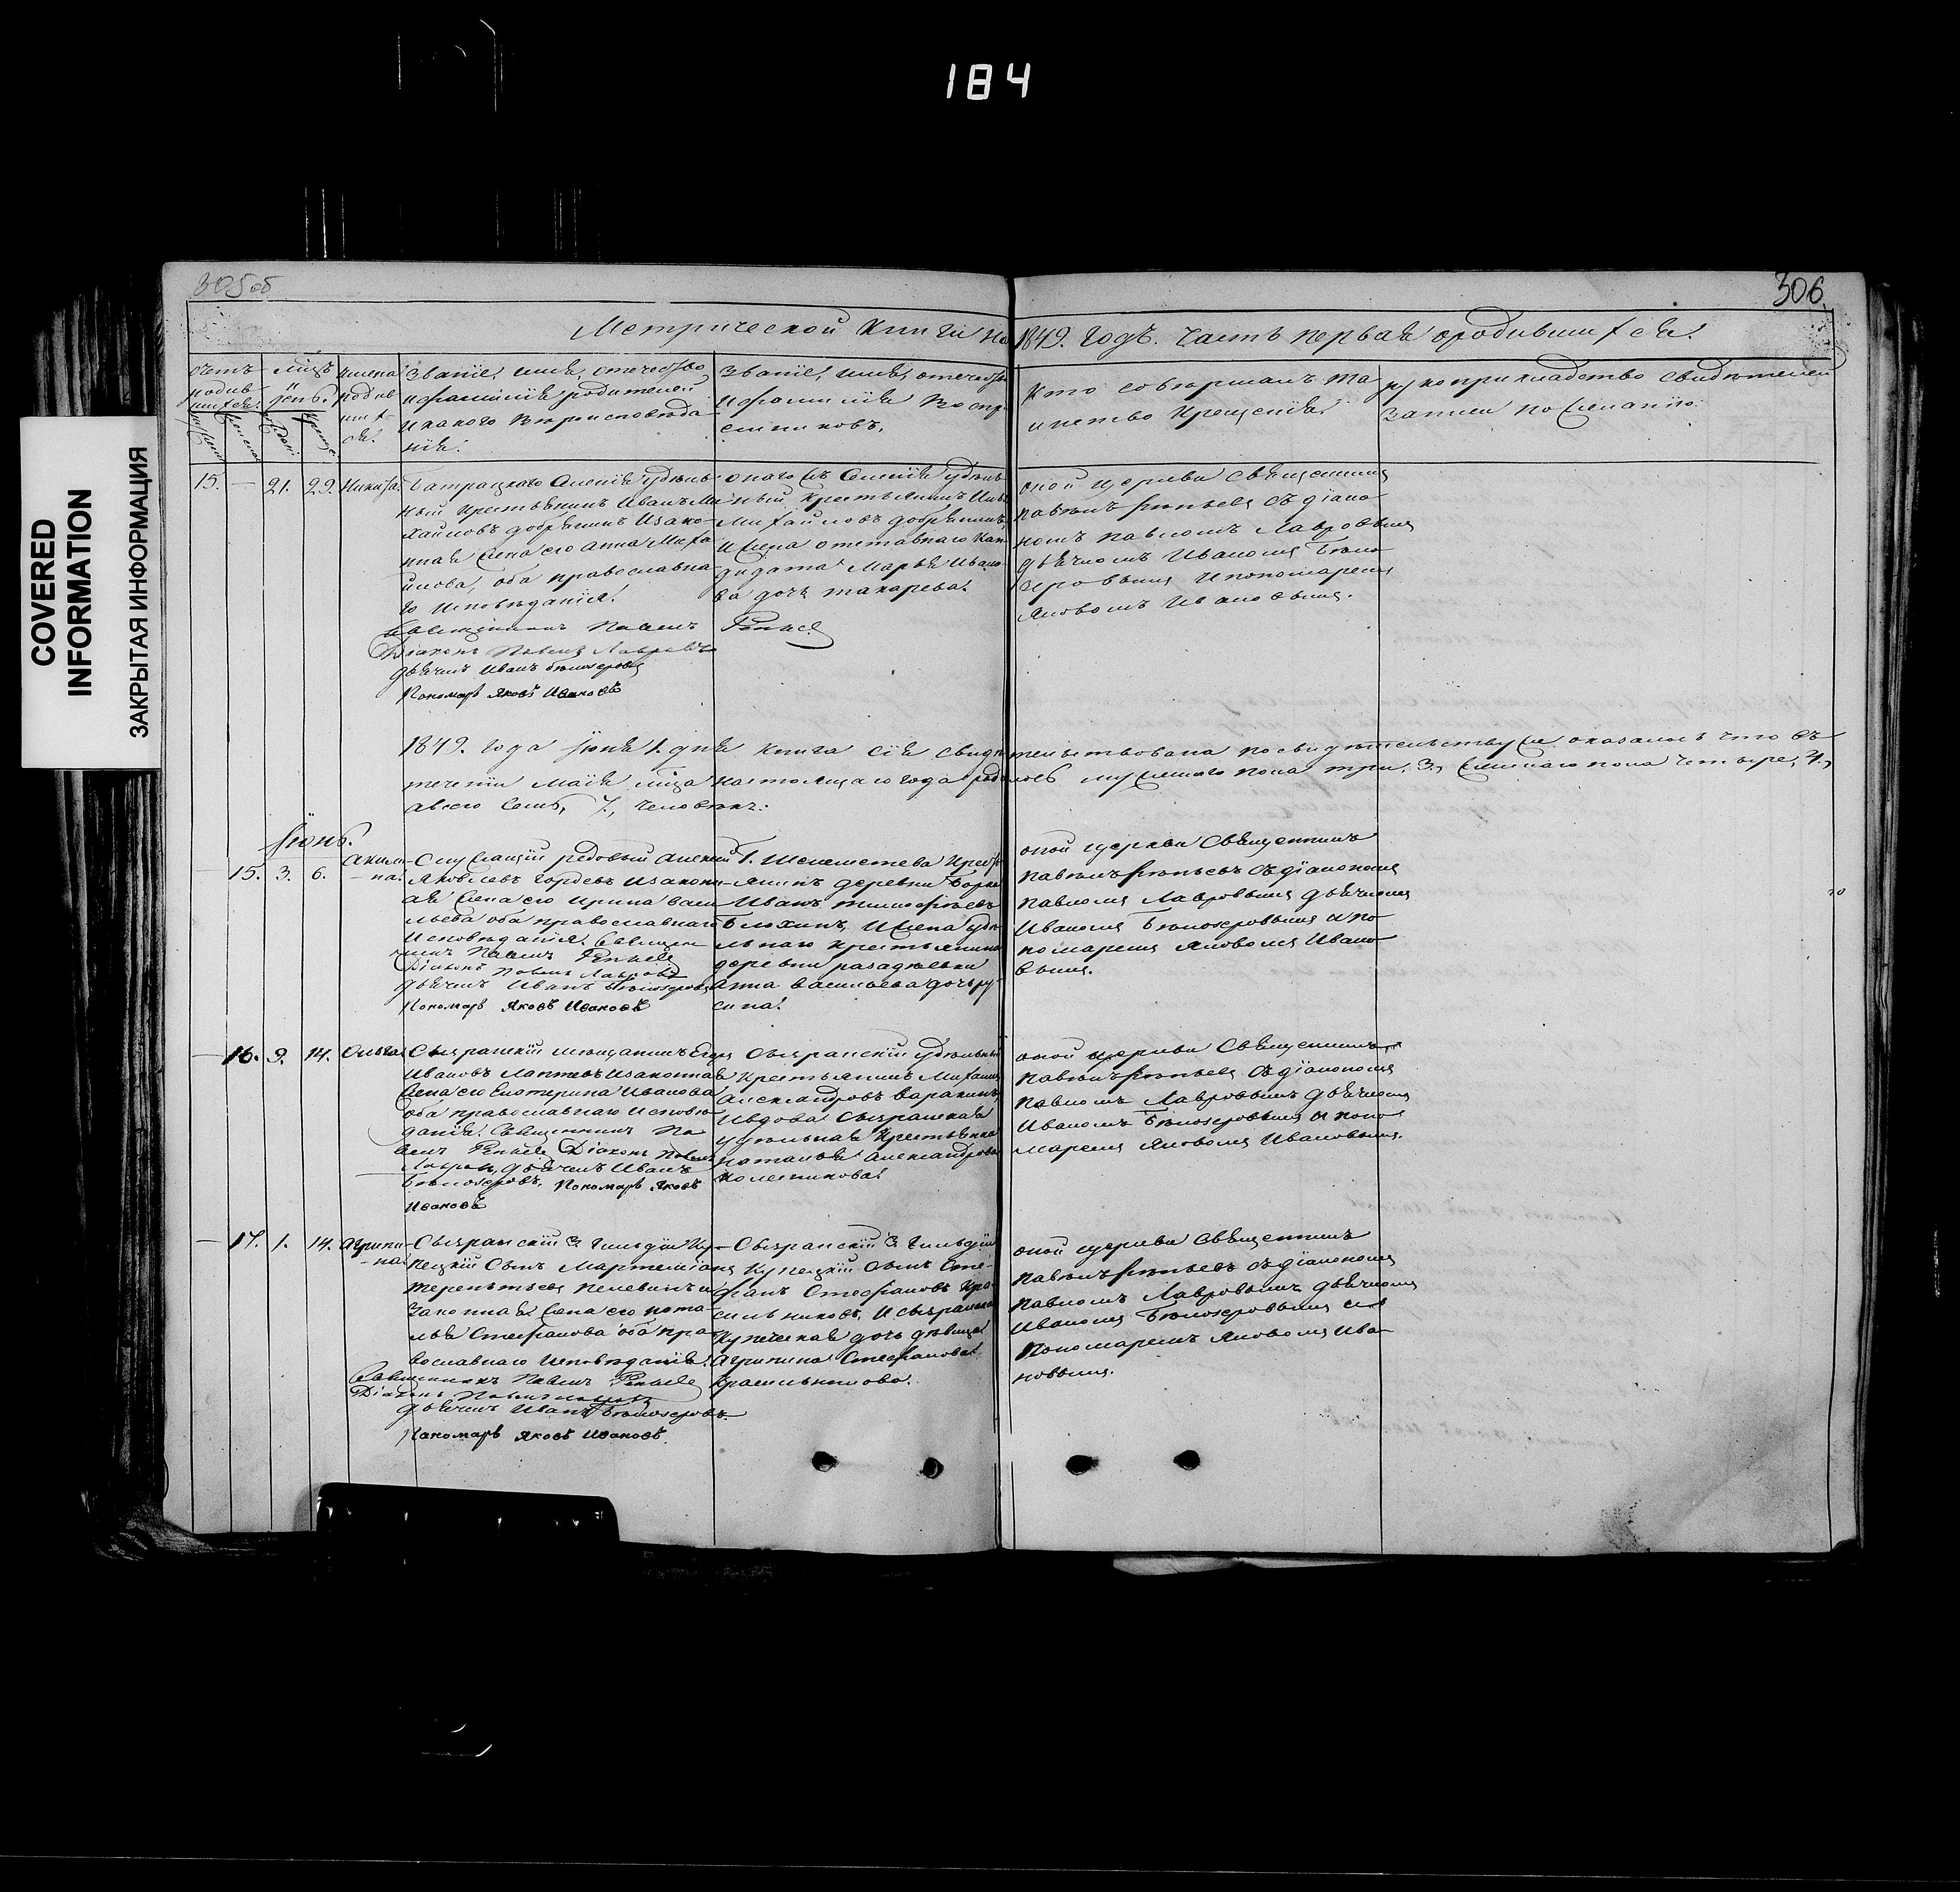 184
COVERED
INFORMATION
ЗАКРЫТАЯ ИНФОРМАЦИЯ
305 об
306.
Метрической Книги на 1849. годъ. Часть первая ородившихся.
Счетъ родив-шихся.
мѣсяцъ и день.
имена родив-шихся.
Званіе, имя, отечество,
и фамилія родителей
и какого вѣроисповѣда
нія.
Званіе, имя, отечество
и фамилія воспрі
емниковъ.
Кто совершалъ та
инство крещенія.
рукоприкладство свидѣтелей
записи по желанію.
15. — 21. 29. Никита.
Батрацкаго Селенія удѣль-
ный крестьянинъ Иванъ Ми
хайловъ добрынинъ изако-
нная жена его Анна Миха
йлова, оба православна-
го исповѣданія.
Священникъ Павелъ
Діаконъ Павелъ Лавровъ
дьячекъ Иванъ Бѣлозеровъ
Пономарь Яковъ Ивановъ
онаго жъ Селенія удѣль-
ный крестьянинъ
Михайловъ добрынинъ,
и жена отставнаго кан
дидата Марья Ивано
ва дочь макарова.
оной церкви Священник
съ діако
номъ Павломъ Лавровымъ
дьячкомъ Иваномъ Бѣло
зеровымъ ипономаремъ
Яковомъ Ивановымъ.
1849. года Іюня 1. дня книга сія свидѣтельствована посвидѣтельству же оказалось что въ
течении Маія мѣсяца настоящаго года родилось мужескаго пола три, 3, женскаго пола четыре, 4,
авсего семь, 7, человѣкъ.
Іюнь.
15. 3. 6. Акили-
-на.
Служащій рядовый Алексѣй
Яковлевъ гордѣевъ изаконн-
ая жена его Ирина васи
льева оба православнаго
исповѣданія. Священ
никъ Павелъ
Діаконъ Павелъ Лавровъ
дьячекъ Иванъ Бѣлозеровъ
Пономарь Яковъ Ивановъ
Г. Шереметева крестья
янинъ деревни
Иванъ тимофѣевъ
Блохинъ, И жена удѣ
льнаго крестьянина
деревни
Анна васильева дочь ру
сина.
оной церкви Священникъ
съ діакономъ
Павломъ Лавровымъ дьячкомъ
Иваномъ Бѣлозеровымъ ипо
номаремъ Яковомъ Ивано
вымъ.
— 16. 9. 14. Ольга.
Сызранскій мѣщанинъ Егоръ
Ивановъ Лаптевъ изаконная
жена его Екатерина Иванова
оба православнаго исповѣ
данія. Священникъ Па
велъ Діаконъ Павелъ
Лавровъ, дьячекъ Иванъ
Бѣлозеровъ. Пономарь Яковъ
Ивановъ
Сызранскій удѣльный
крестьянинъ Михаилъ
Александровъ варакинъ,
ивдова Сызранская
удѣльная крестьянка
наталья Александрова
колесникова.
оной церкви Священникъ
съ діакономъ
Павломъ Лавровымъ дьячкомъ
Иваномъ Бѣлозеровымъ и поно
маремъ Яковомъ Ивановымъ.
— 17. 1. 14. Агрипи
-на.
Сызранскій 3й гильдіи Ку-
пецкій Сынъ Мартеміанъ
терентьевъ Пелевинъ и
законная жена его ната-
лья Стефанова оба пра
вославнаго исповѣданія.
Священникъ Павелъ
Діаконъ Павелъ Лавровъ
дьячекъ Иванъ Бѣлозеровъ
Пономарь Яковъ Ивановъ.
Сызранскій 3й гильдіи
Купецкій сынъ Сте-
фанъ Стефановъ Кра-
сильниковъ, И сызранская
Купеческая дочь дѣвица
Агрипина Стефанова
Красильникова.
оной церкви Священникъ
съ діакономъ
Павломъ Лавровымъ дьячкомъ
Иваномъ Бѣлозеровымъ и
Пономаремъ Яковомъ Ива
новымъ.